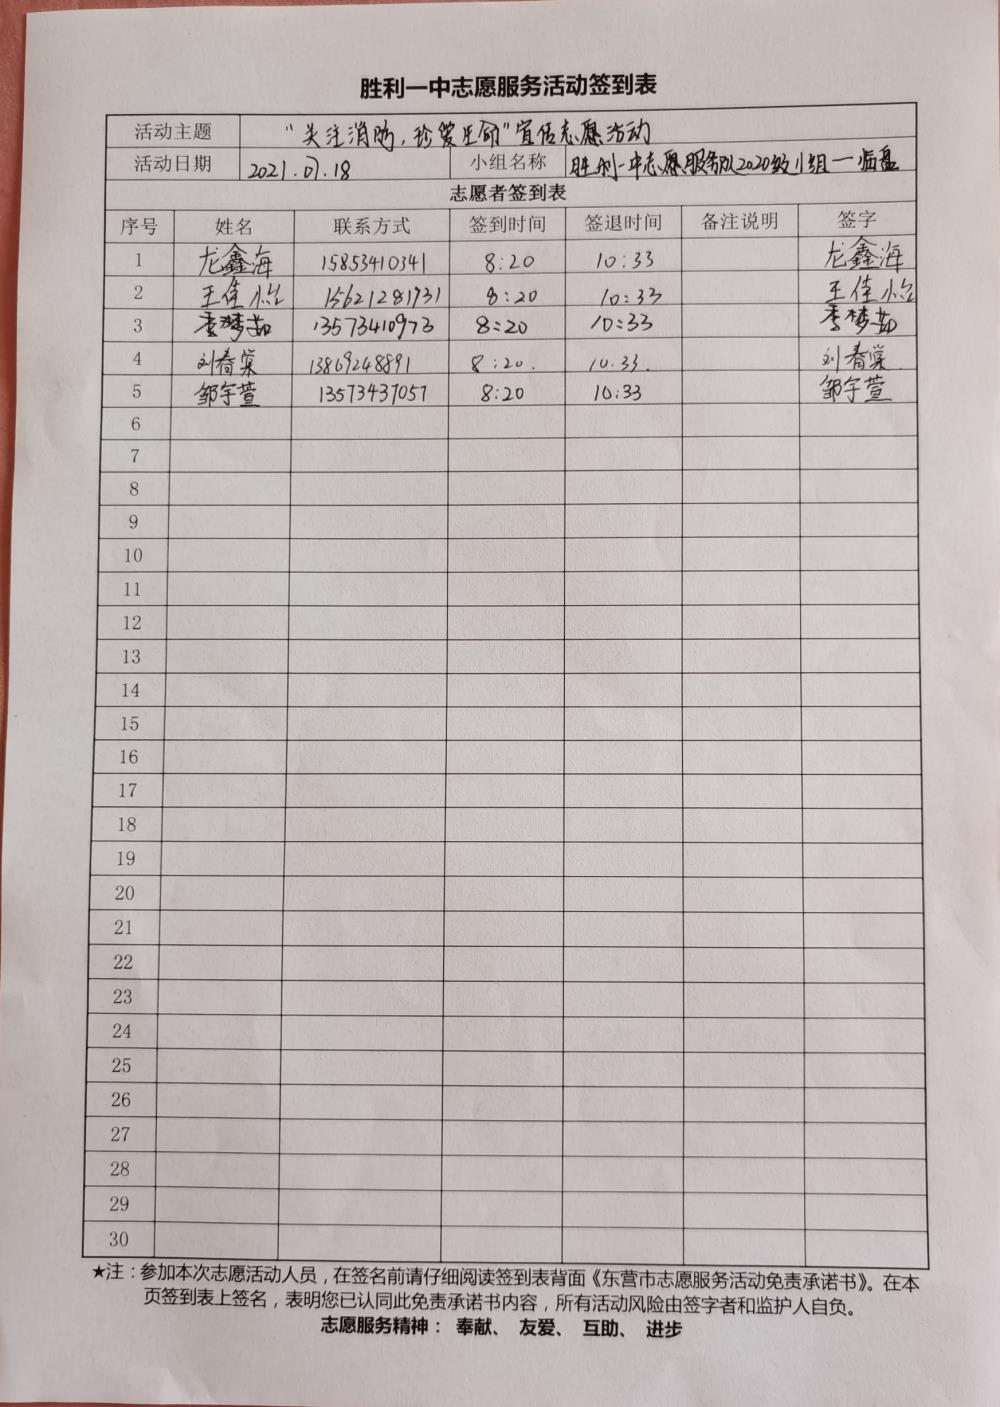 胜利一中志愿服务活动签到表
活动主题 “关注消防,珍爱生命”宣传志愿活动
活动日期 2021.07.18 小组名称 胜利一中志愿服务队2020级小组一临盘
志愿者签到表
序号 姓名 联系方式 签到时间 签退时间 备注说明 签字
1 龙鑫海 15853410341 8:20 10:33 龙鑫海
2 王佳怡 15621281731 8:20 10:33 王佳怡
3 李梦茹 13573410973 8:20 10:33 李梦茹
4 刘春棠 13869248891 8:20. 10.33. 刘春棠
5 邹宇萱 13573437057 8:20 10:33 邹宇萱
6
7
8
9
10
11
12
13
14
15
16
17
18
19
20
21
22
23
24
25
26
27
28
29
30
★注:参加本次志愿活动人员,在签名前请仔细阅读签到表背面《东营市志愿服务活动免责承诺书》。在本
页签到表上签名,表明您已认同此免责承诺书内容,所有活动风险由签字者和监护人自负。
志愿服务精神: 奉献、 友爱、 互助、 进步